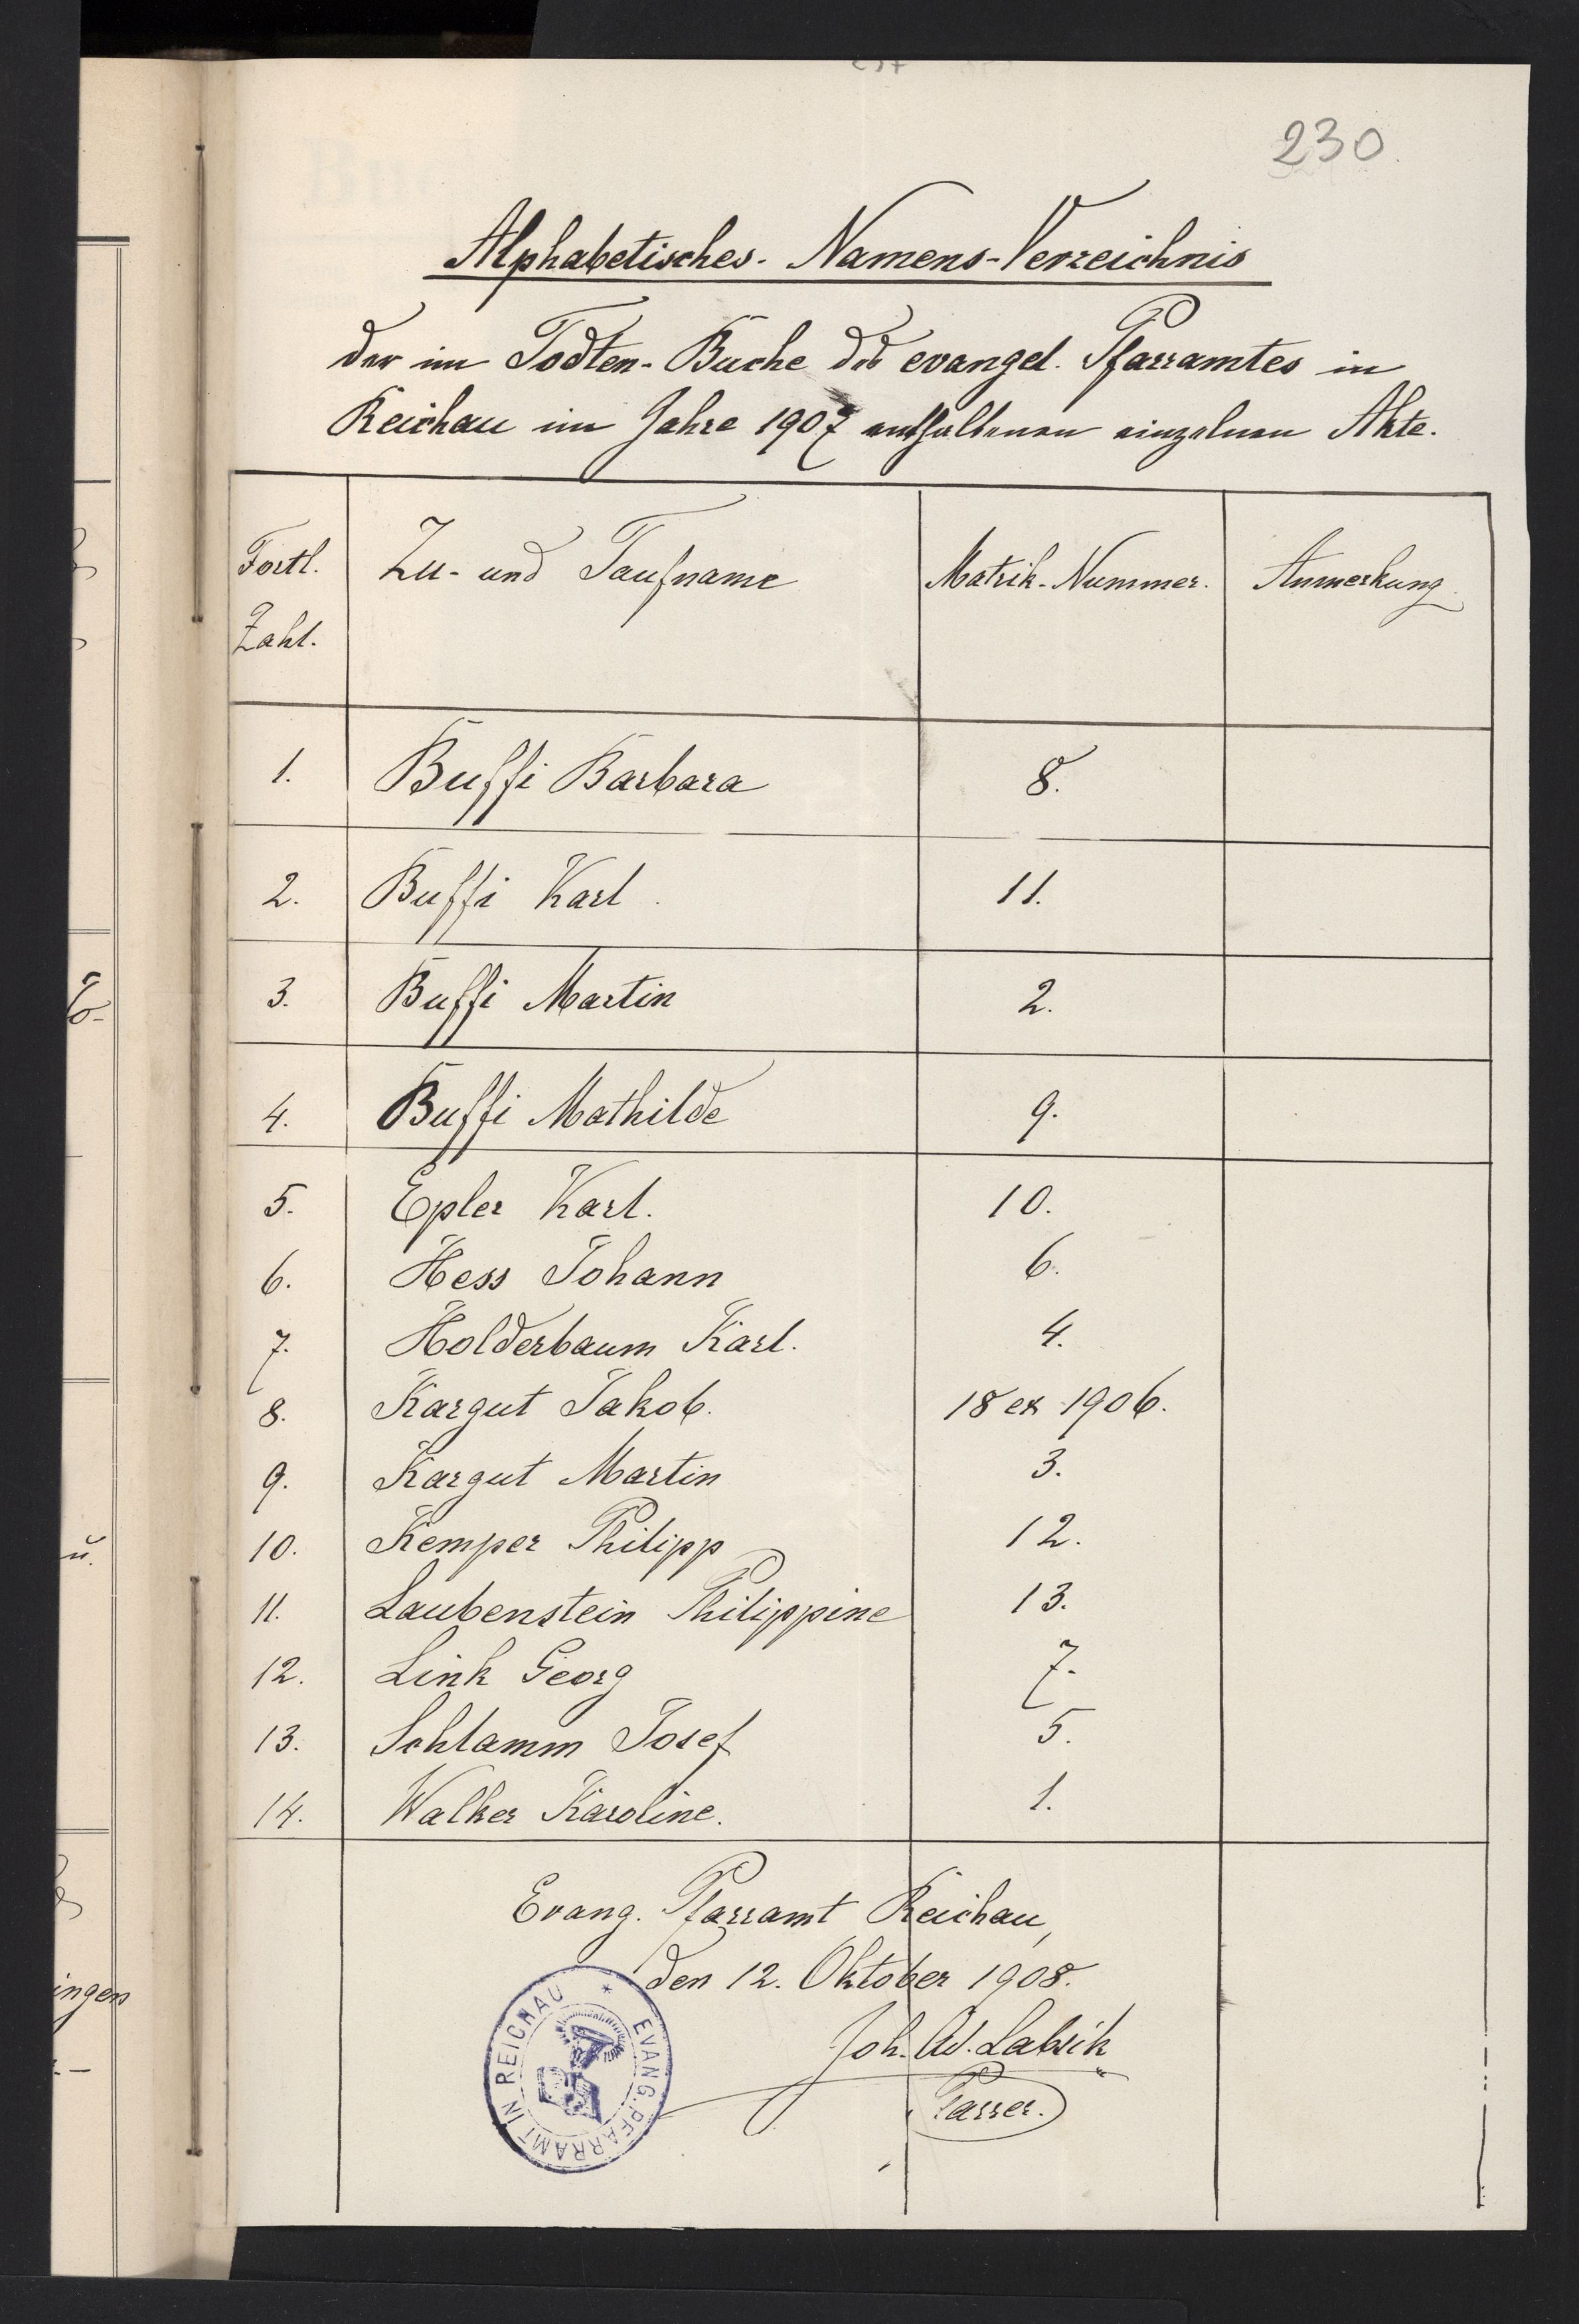 230
Alphabetisches Namens-Verzeichnis
der im Todten-Buche des evangel. Pfarramtes in
Reichau im Jahre 1907 enthaltenen einzelnen Akte.
Fortl. Zahl. Zu- und Taufname Matrik-Nummer. Anmerkung
1. Buffi Barbara 8.
2. Buffi Karl 11.
3. Buffi Martin 2.
4. Buffi Mathilde 9.
5. Epler Karl. 10.
6. Hess Johann 6.
7. Holderbaum Karl. 4.
8. Kargut Jakob. 18 ex 1906.
9. Kargut Martin 3.
10. Kemper Philipp 12.
11. Laubenstein Philippine 13.
12. Link Georg 7.
13. Schlamm Josef 5.
14. Walker Karoline. 1.
Evang. Pfarramt Reichau,
den 12. Oktober 1908.
Joh. Ad. Labsik
Pfarrer.
EVANG. PFARRAMT IN REICHAU *
ingen